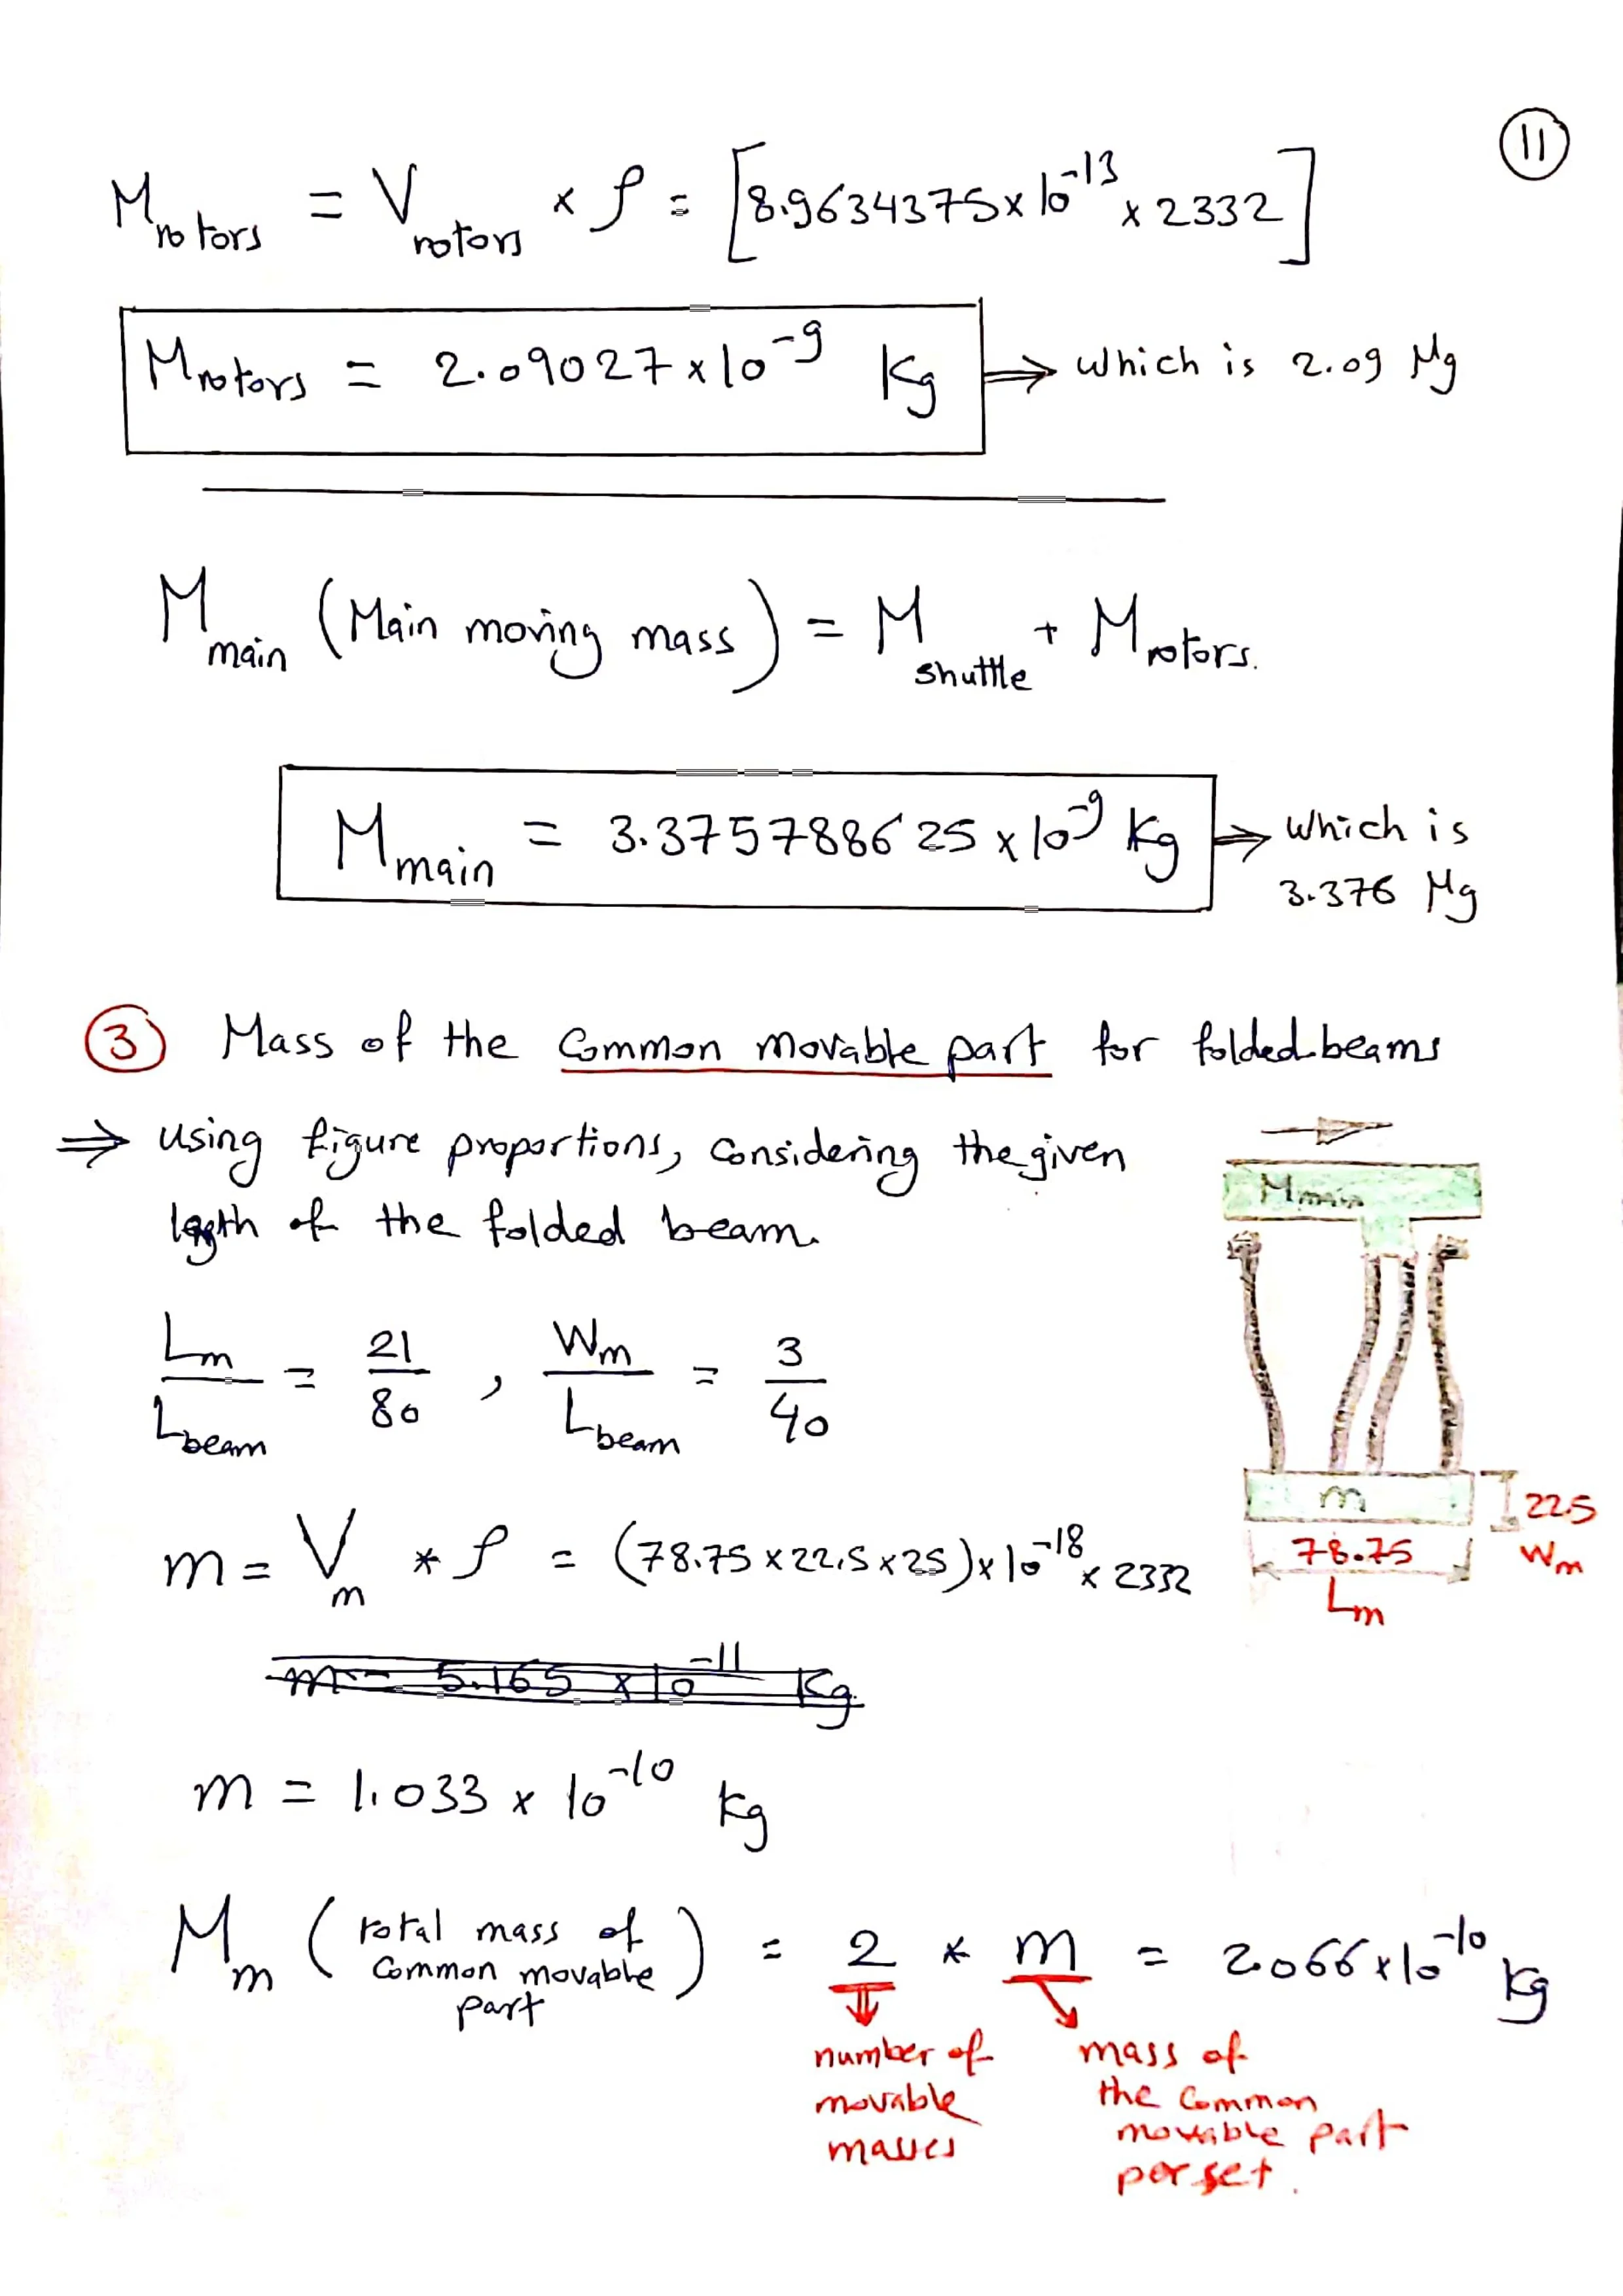 11
M_rotors = V_rotors × ρ = [8.9634375×10^-13 × 2332]
M_rotors = 2.09027×10^-9 Kg ⇒ which is 2.09 Mg
M_main (Main moving mass) = M_shuttle + M_rotors.
M_main = 3.375788625×10^-9 Kg ⇒ which is 3.376 Mg
3 Mass of the Common movable part for folded beams
⇒ using figure proportions, Considering the given
length of the folded beam.
M_main
L_m / L_beam = 21/80 , W_m / L_beam = 3/40
m
22.5
W_m
78.75
L_m
m = V_m * ρ = (78.75×22.5×25)×10^-18 × 2332
m = 5.165 × 10^-11 Kg
m = 1.033 × 10^-10 Kg
M_m (total mass of Common movable part) = 2 * m = 2.066×10^-10 Kg
number of movable masses
mass of the Common movable part per set.